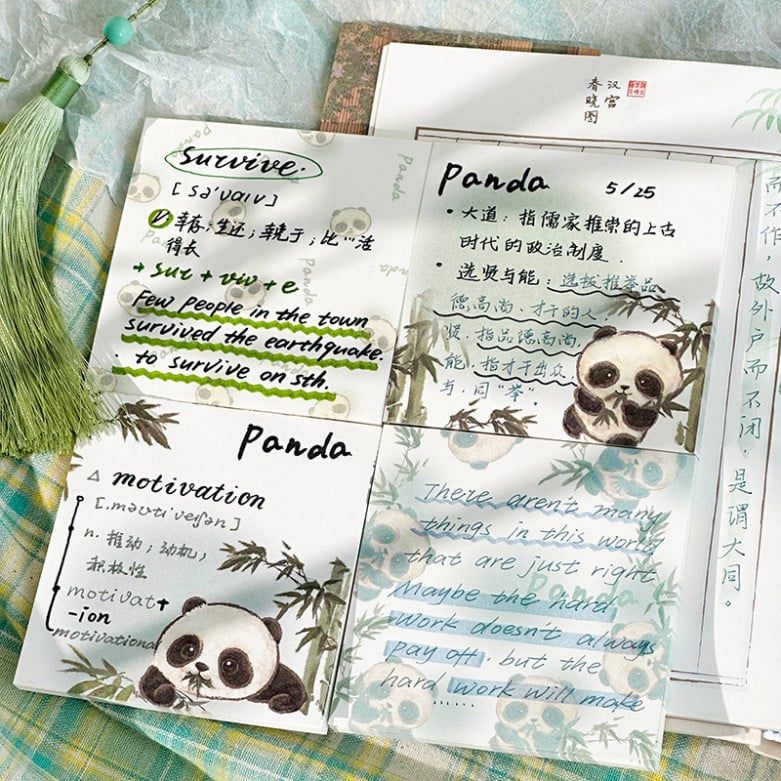 Survive.
[sə'vaɪv]
V 幸存；生还；幸免于；比…活
得长
→ sur + viv + e
Few people in the town
survived the earthquake.
. to survive on sth.
Panda
Panda
Panda
Panda 5/25
• 大道：指儒家推崇的上古
时代的政治制度．
• 选贤与能：选拔推举品
德高尚、才干的人．
贤，指品德高尚，
能，指才干出众，
与，同“举”．
Panda
△ motivation
[ˌməʊtɪ'veɪʃən]
n. 推动；动机，
积极性
motivat+
-ion
motivational
There aren't many
things in this world
that are just right
Maybe the hard
work doesn't always
pay off, but the
hard work will make
......
Panda
汉宫
春晓图
而不作，故外户而不闭，是谓大同。